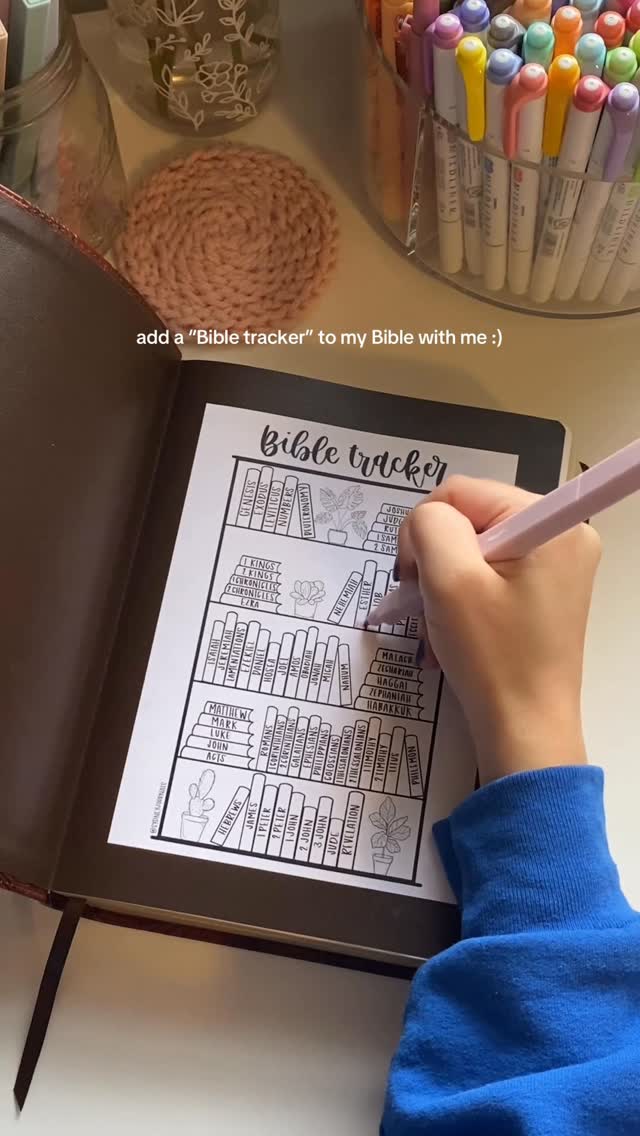 add a “Bible tracker” to my Bible with me :)
Bible tracker
GENESIS
EXODUS
LEVITICUS
NUMBERS
DEUTERONOMY
1 KINGS
2 KINGS
1 CHRONICLES
2 CHRONICLES
EZRA
NEHEMIAH
ESTHER
ISAIAH
JEREMIAH
LAMENTATIONS
EZEKIEL
DANIEL
HOSEA
JOEL
AMOS
OBADIAH
JONAH
MICAH
NAHUM
ZECHARIAH
HAGGAI
ZEPHANIAH
HABAKKUK
MATTHEW
MARK
LUKE
JOHN
ACTS
ROMANS
1 CORINTHIANS
2 CORINTHIANS
GALATIANS
EPHESIANS
PHILIPPIANS
COLOSSIANS
1 THESSALONIANS
2 THESSALONIANS
1 TIMOTHY
2 TIMOTHY
TITUS
PHILEMON
HEBREWS
JAMES
1 PETER
2 PETER
1 JOHN
2 JOHN
3 JOHN
JUDE
REVELATION